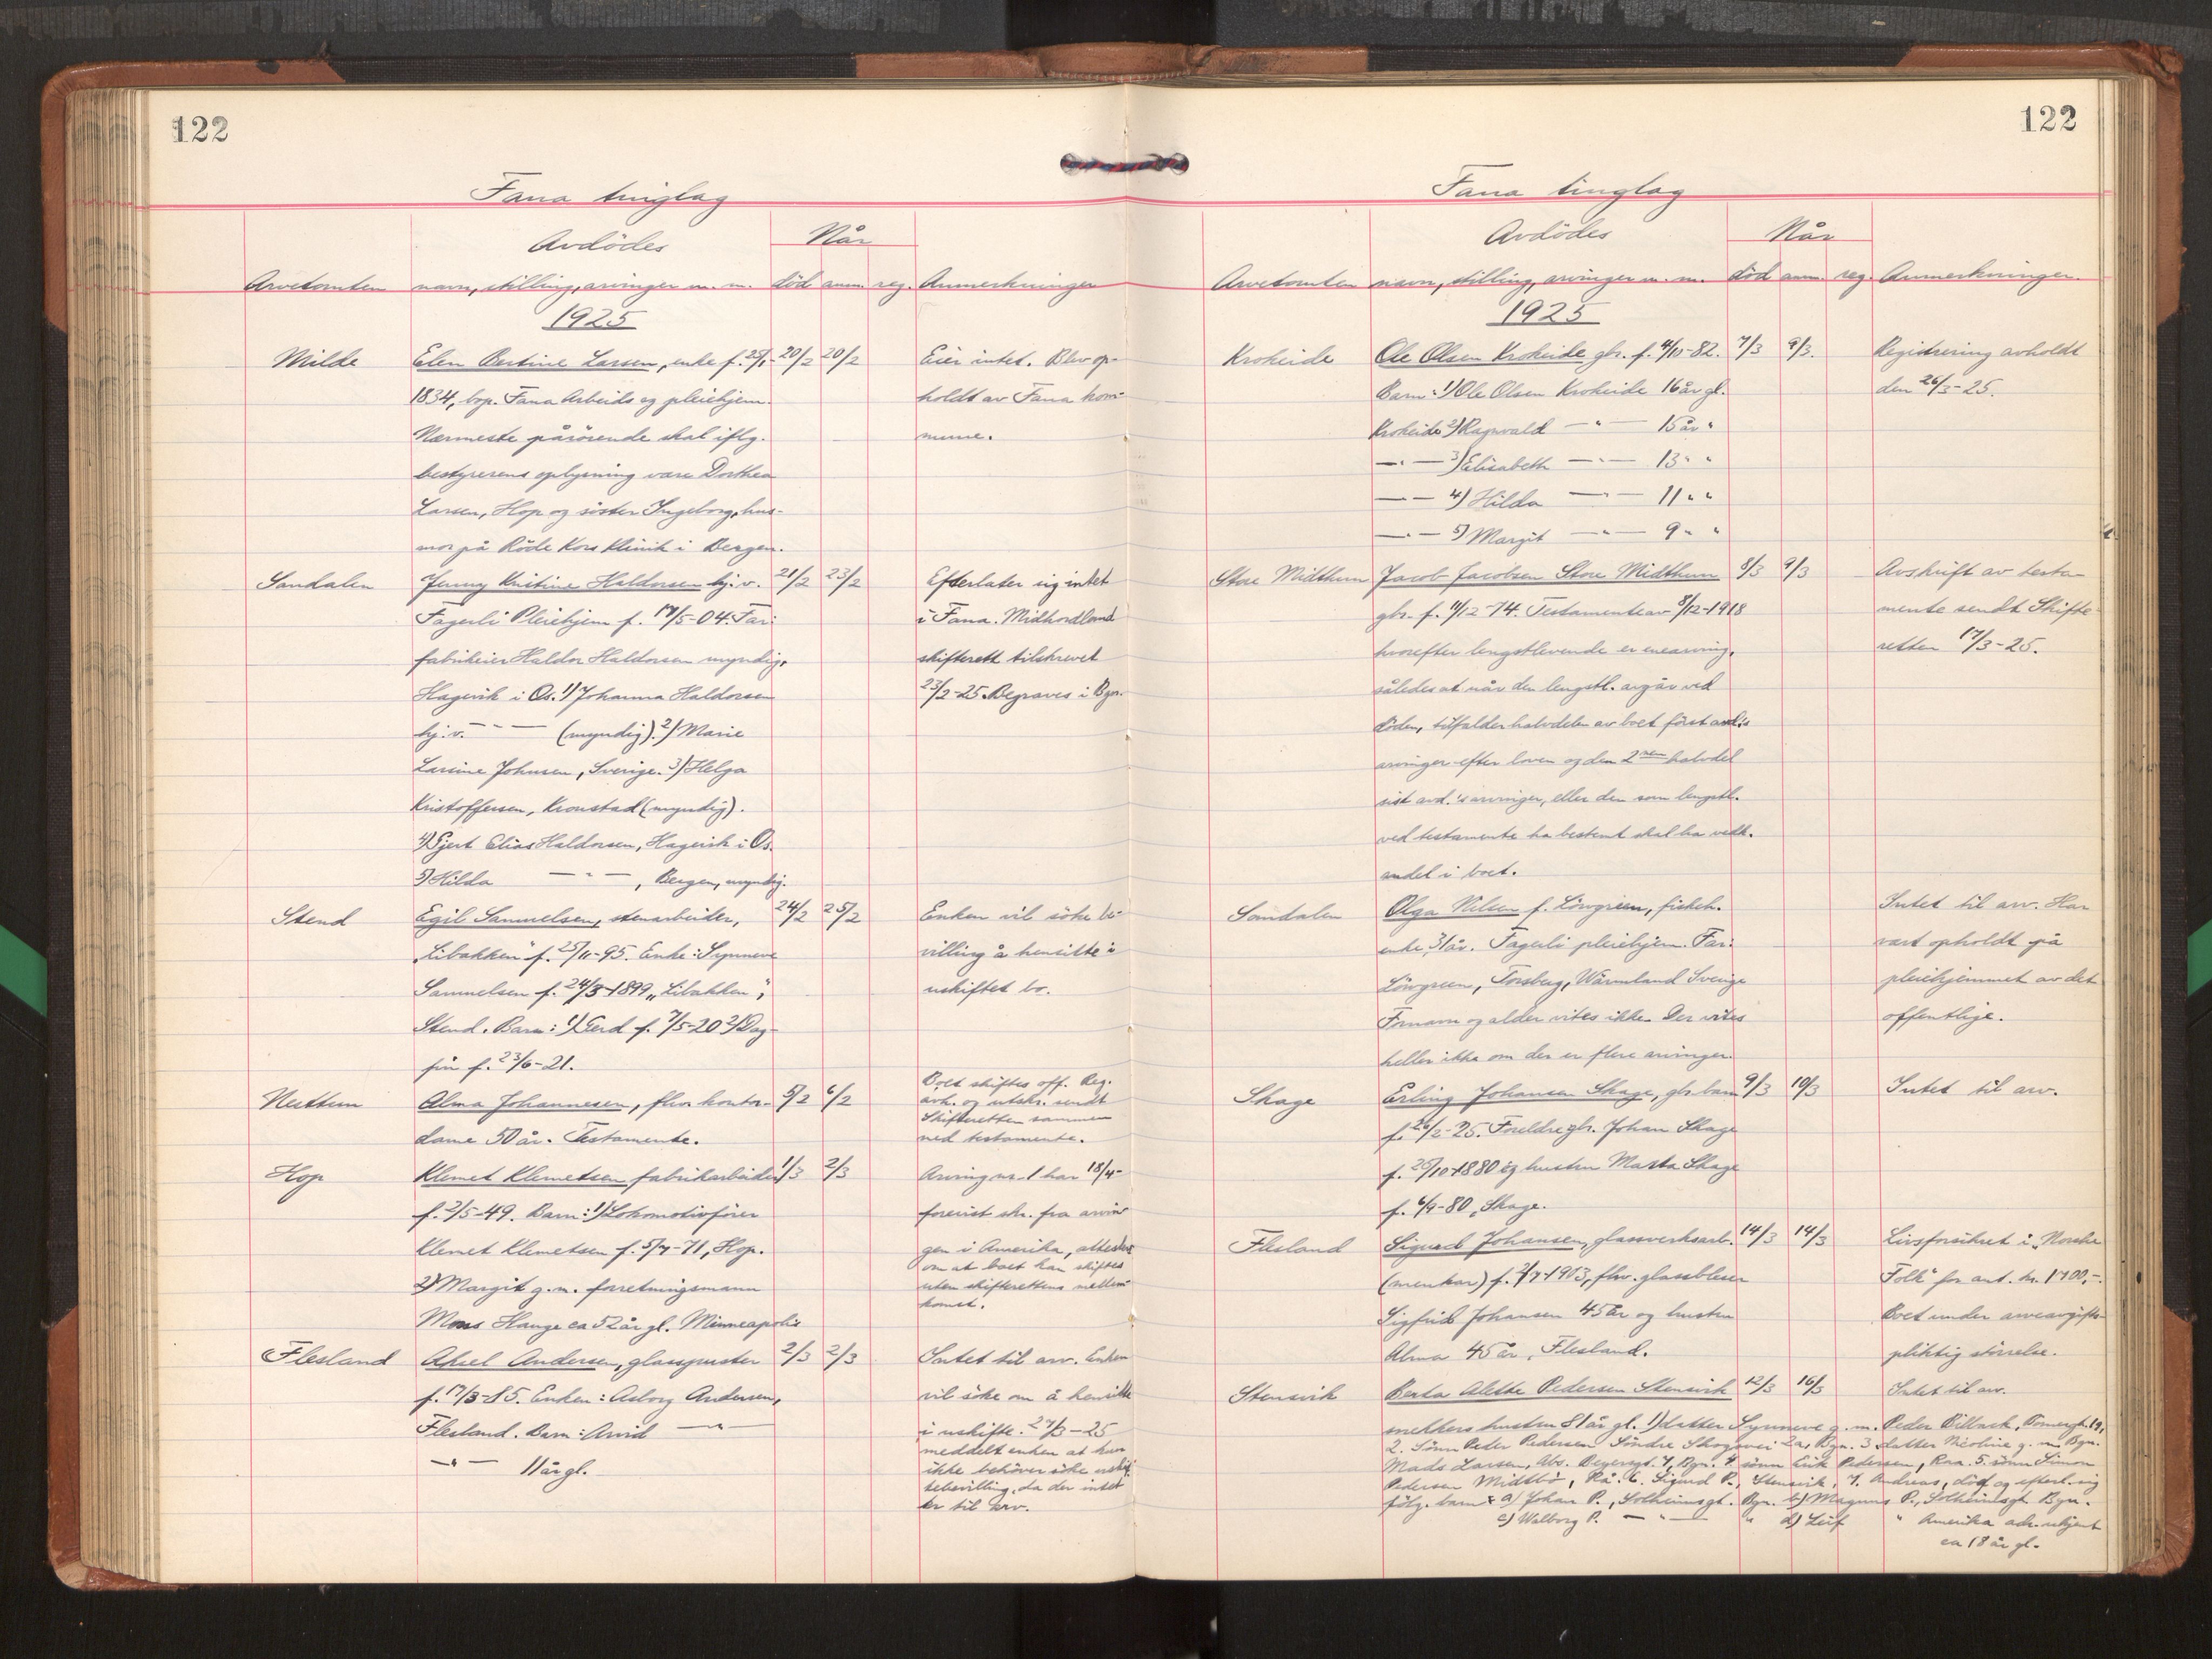 122
Fana tinglag
Avdödes
Når
Arvetomten navn, stilling, arvinger m. m. död anm. reg. Anmerkninger
1925
Milde Elen Bertine Larsen, enke f. 25/1- 20/2 20/2 Eier intet. Blev op-
1834, bop. Fana Arbeids og pleiehjem. holdt av Fana kom-
Nærmeste pårörende skal iflg. mune.
bestyrerens oplysning være Dorthea
Larsen, Hop og söster Ingeborg, hus-
mor på Röde Kors Klinik i Bergen.
Sandalen Jenny Kristine Haldorsen hj. v. 21/2 23/2 Efterlater sig intet
Fagerli Pleiehjem f. 17/5-04. Far: i Fana. Midhordland
fabrikeier Haldor Haldorsen myndig, skifterett tilskrevet
Hagevik i Os. 1) Johanna Haldorsen 23/2-25. Begraves i Bgn.
hj. v. — " — (myndig). 2) Marie
Larsine Johnsen, Sverige. 3) Helga
Kristoffersen, Kronstad (myndig).
4) Gjert Elias Haldorsen, Hagevik i Os.
5) Hilda — " — , Bergen, myndig.
Stend Egil Samuelsen, stenarbeider, 24/2 25/2 Enken vil söke be-
"Libakken" f. 25/11-95. Enke: Synneve villing å hensitte i
Samuelsen f. 24/3-1899 "Libakken", uskiftet bo.
Stend. Barn: 1) Gerd f. 7/5-20 2) Dag-
fin f. 23/6-21.
Nesttun Alma Johannesen, fhv. kontor- 5/2 6/2 Boet skiftes off. Reg.
avh. og utskr. sendt
dame 50 år. Testamente. Skifteretten sammen
med testamente.
Hop Klemet Klemetsen fabrikarbeider 1/3 2/3 Arving nr. 1 har 18/4-
f. 2/5-49. Barn: 1) Lokomotivförer forevist skr. fra arvin
Klemet Klemetsen f. 5/7-71, Hop. gen i Amerika, attester
om at boet kan skiftes
2) Margit g.m. forretningsmann uten skifterettens mellem-
komst.
Mons Hauge ca 52 år gl. Minneapolis
Flesland Aksel Andersen, glasspuster 2/3 2/3 Intet til arv. Enken
f. 17/3-85. Enken: Asborg Andersen, vil söke om å hensitte
Flesland. Barn: Arvid — " — i uskifte. 27/3-25
meddelt enken at hun
— " — 11 år gl. ikke behöver söke uskif-
tebevilling, da der intet
er til arv.
122
Fana tinglag
Avdödes
Når
Arvetomten navn, stilling, arvinger m. m. död anm. reg. Anmerkninger.
1925
Krokeide Ole Olsen Krokeide gbr. f. 4/10-82. 7/3 9/3. Registrering avholdt
Barn: 1) Ole Olsen Krokeide 16 år gl. den 26/3-25.
Krokeide 2) Ragnvald — " — 15 år "
— " — 3) Elisabeth — " — 13 " "
— " — 4) Hilda — " — 11 " "
— " — 5) Margit — " — 9 " "
Store Midthun Jacob Jacobsen Store Midthun 8/3 9/3 Avskrift av testa-
gbr. f. 11/12-74. Testamente av 8/12-1918 mente sendt Skifte-
hvorefter lengstlevende er enearving, retten 17/3-25.
således at når den lengstl. avgår ved
döden, tilfalder halvdelen av boet först avd.'s
arvinger efter loven og den 2nen halvdel
sist avd.'s arvinger, eller den som lengstl.
ved testamente ha bestemt skal ha vedk.
andel i boet.
Sandalen Olga Nilsen f. Lövgreen, fiskeh. Intet til arv. Har
enke, 31 år. Fagerli pleiehjem. Far: vært opholdt på
Lövgreen, Torsberg, Wärmland Sverige pleiehjemmet av det
Fornavn og alder vites ikke. Der vites offentlige.
heller ikke om der er flere arvinger.
Skage Erling Johansen Skage, gbr. barn 9/3 10/3 Intet til arv.
f. 26/2-25. Foreldre gbr. Johan Skage
f. 25/10-1880 og hustru Marta Skage
f. 6/9-80, Skage.
Flesland Sigurd Johansen, glassverksarb. 14/3 14/3 Livsforsikret i "Norske
(menkar) f. 2/7-1903, fhv. glassbleser Folk" for ant. kr. 1700,-.
Sigfrid Johansen 45 år og hustru Boet under arveavgifts-
Alma 45 år, Flesland. pliktig störrelse.
Stensvik Berta Alette Pedersen Stensvik 12/3 16/3 Intet til arv.
snekkers hustru 81 år gl. 1) datter Synneve g. m. Peder Bilback, Tomergt. 19,
2. Sönn Peder Pedersen Söndre Skogvei 2a, Bgn. 3 datter Nicoline g. m. Bgn.
Mads Larsen, Abs. Beyersgt. 7, Bgn. 4 sönn Erik Pedersen, Raa. 5. sönn Simon
Pedersen Midtbö, Rå. 6. Sigurd P., Stensvik, 7. Andreas, död og efterl. sig
fölg. barn: a) Johan P., Solheimsgt. Bgn. b) Magnus P., Solheimsgt. Bgn.
c) Walborg P. — " — " d) Leif " Amerika adr. ukjent
ca 18 år gl.